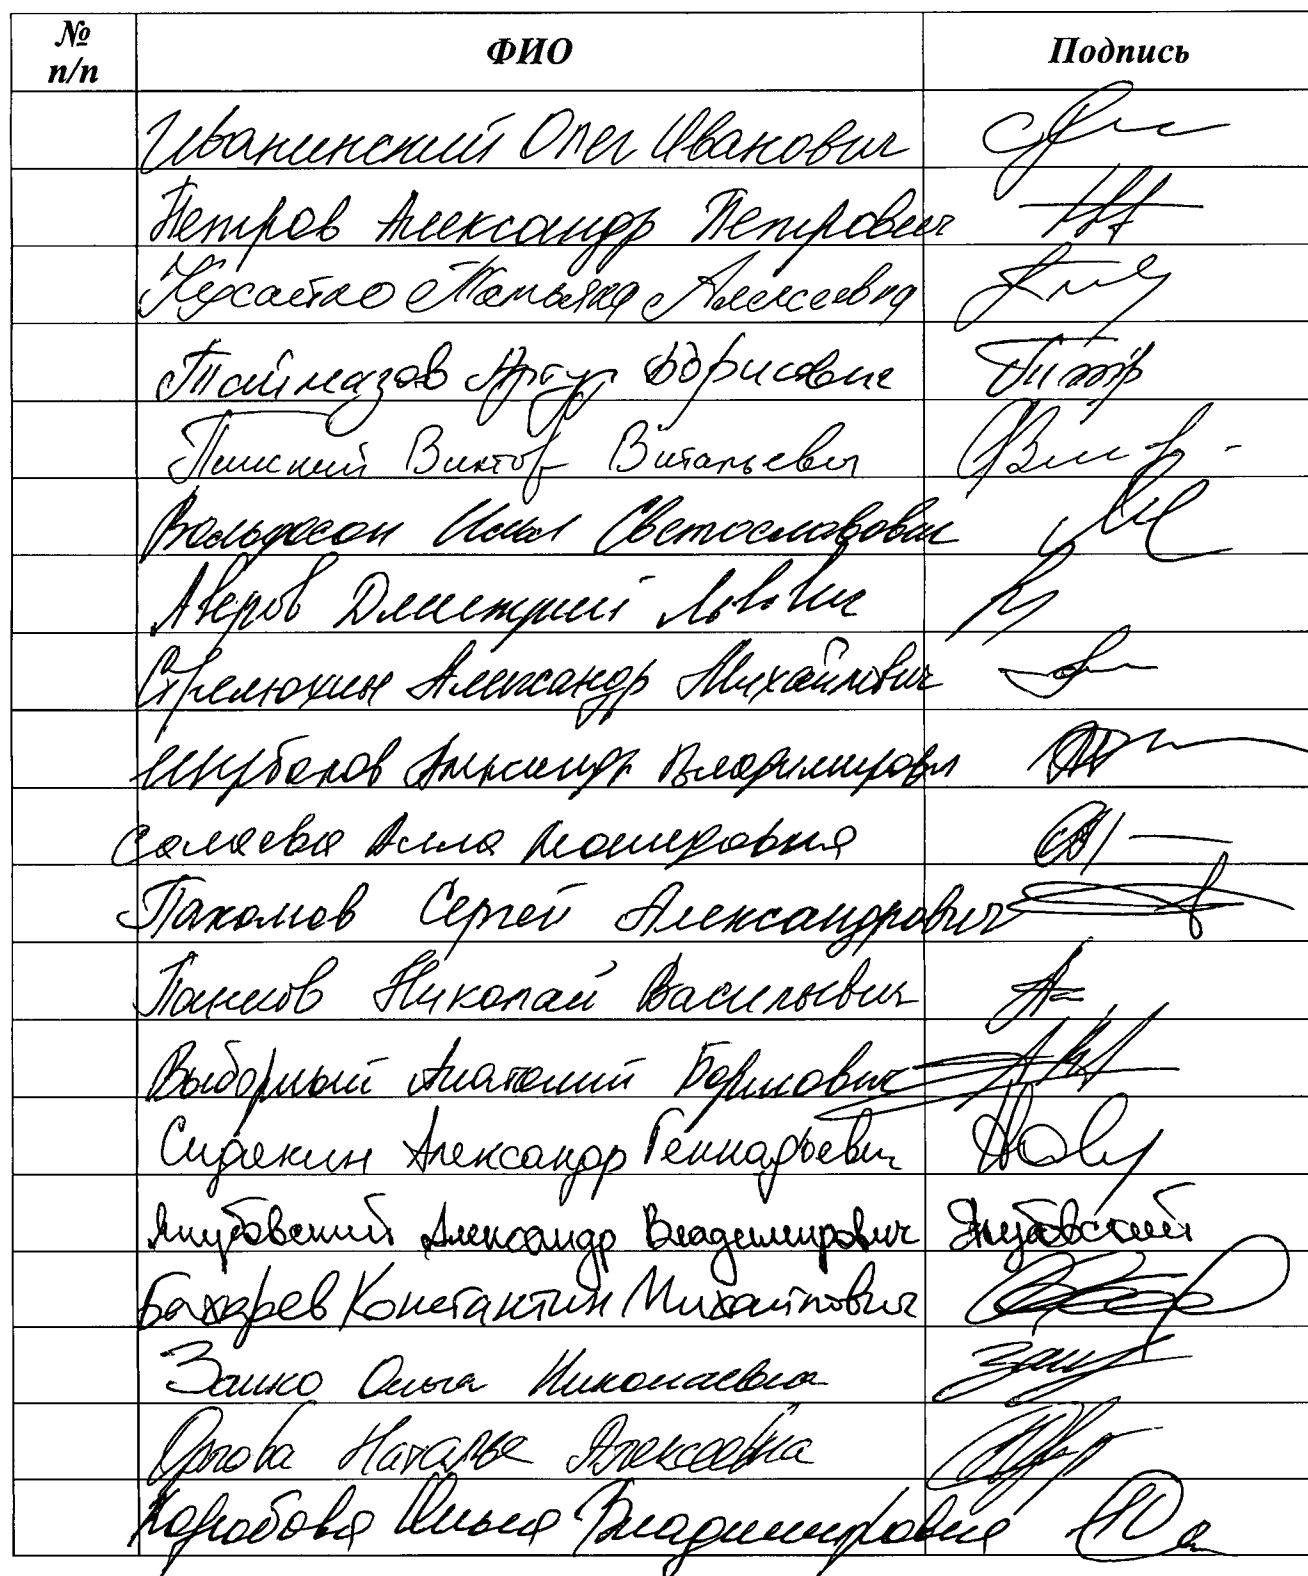 № п/п ФИО Подпись
Иванинский Олег Иванович
Петров Александр Петрович
Татьяна Алексеевна
Таймазов Артур Борисович
Пинский Виктор Витальевич
Вольфсон Илья Светославович
Аверов Дмитрий Львович
Стрелюхин Александр Михайлович
Александр Владимирович
Салаева Алла Леонидовна
Пахомов Сергей Александрович
Панков Николай Васильевич
Выборный Анатолий Борисович
Сидякин Александр Геннадьевич
Якубовский Александр Владимирович Якубовский
Бахарев Константин Михайлович
Занко Ольга Николаевна
Орлова Наталья Алексеевна
Владимировна